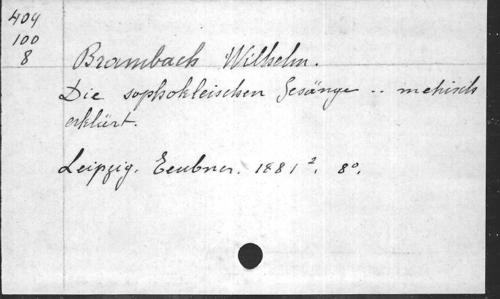 404
100
8
Brambach Wilhelm.
Die sophokleischen Gesänge .. metrisch
erklärt.
Leipzig. Teubner. 1881². 8°.